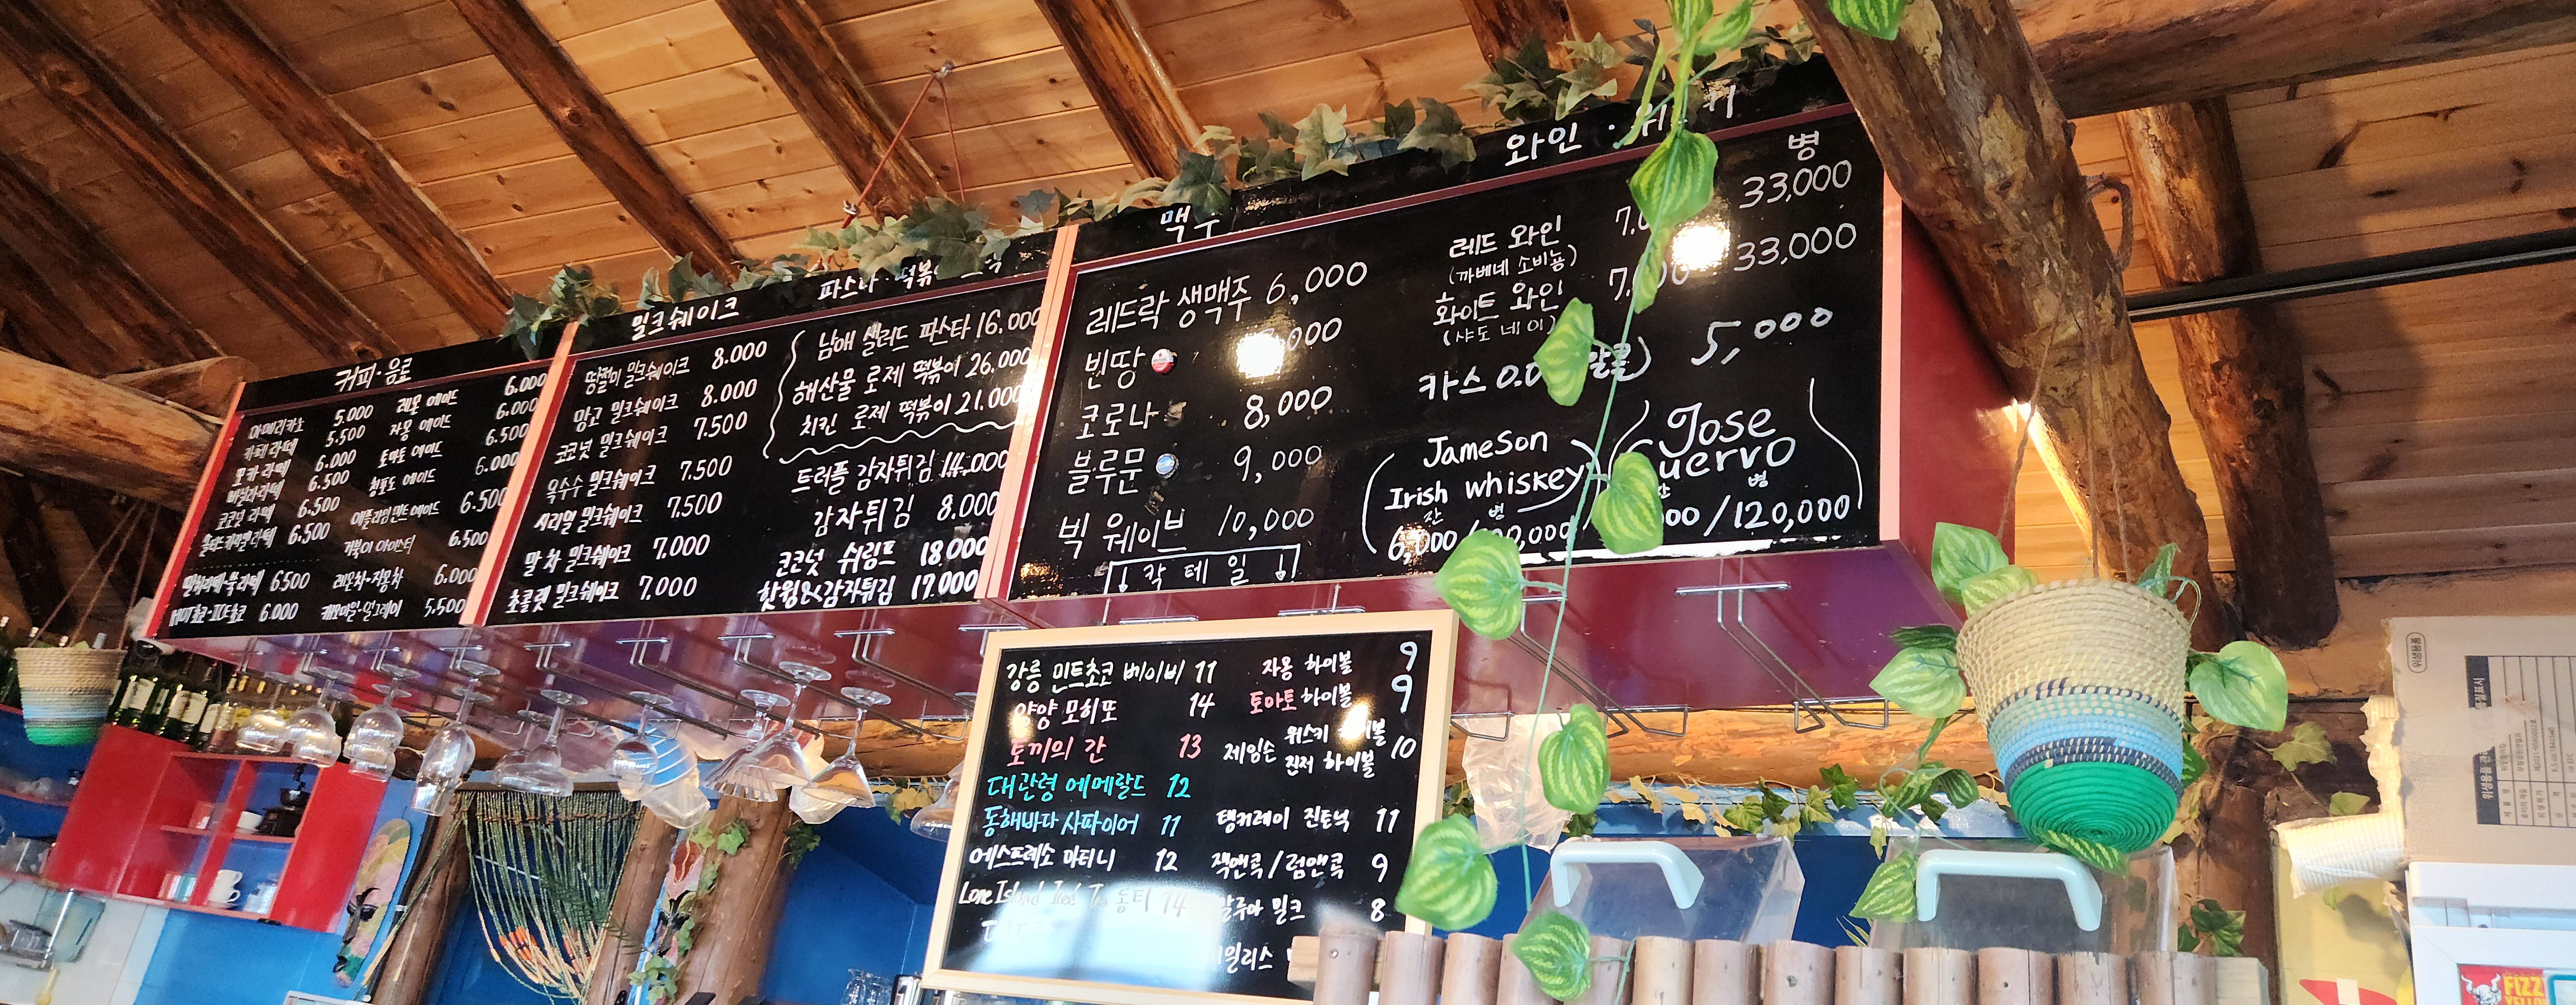 커피·음료
아메리카노 5.000
카페라떼 5.500
모카라떼 6.000
바닐라라떼 6.500
코코넛 라떼 6.500
6.500
6.500
HOT초코·ICE초코 6.000
레몬 에이드 6.000
자몽 에이드 6.000
토마토 에이드 6.500
청포도 에이드 6.000
애플라임민트에이드 6.500
거북이 아이스티 6.500
레몬차·자몽차 6.000
캐모마일·얼그레이 5,500
밀크쉐이크
땅절미 밀크쉐이크 8.000
망고 밀크쉐이크 8.000
코코넛 밀크쉐이크 7.500
옥수수 밀크쉐이크 7.500
시리얼 밀크쉐이크 7.500
말차 밀크쉐이크 7.000
초콜릿 밀크쉐이크 7,000
남애 샐러드 파스타 16.000
해산물 로제 떡볶이 26.000
치킨 로제 떡볶이 21.000
트러플 감자튀김 14,000
감자튀김 8.000
코코넛 쉬림프 18.000
핫윙&감자튀김 17.000
맥주
레드락 생맥주 6,000
빈땅
코로나 8,000
블루문 9,000
빅 웨이브 10,000
칵테일
와인
병
레드 와인 33,000
(까베네 소비뇽)
화이트 와인 33,000
(샤도네이)
카스 5,000
Jameson
Irish whiskey
잔 병
Jose
병
/120,000
강릉 민트초코 베이비 11
양양 모히또 14
토끼의 간 13
대관령 에메랄드 12
동해바다 사파이어 11
에스프레소 마티니 12
14
자몽 하이볼 9
토마토 하이볼 9
제임슨 위스키
진저 하이볼 10
탱커레이 진토닉 11
잭앤콕/럼앤콕 9
깔루아 밀크 8